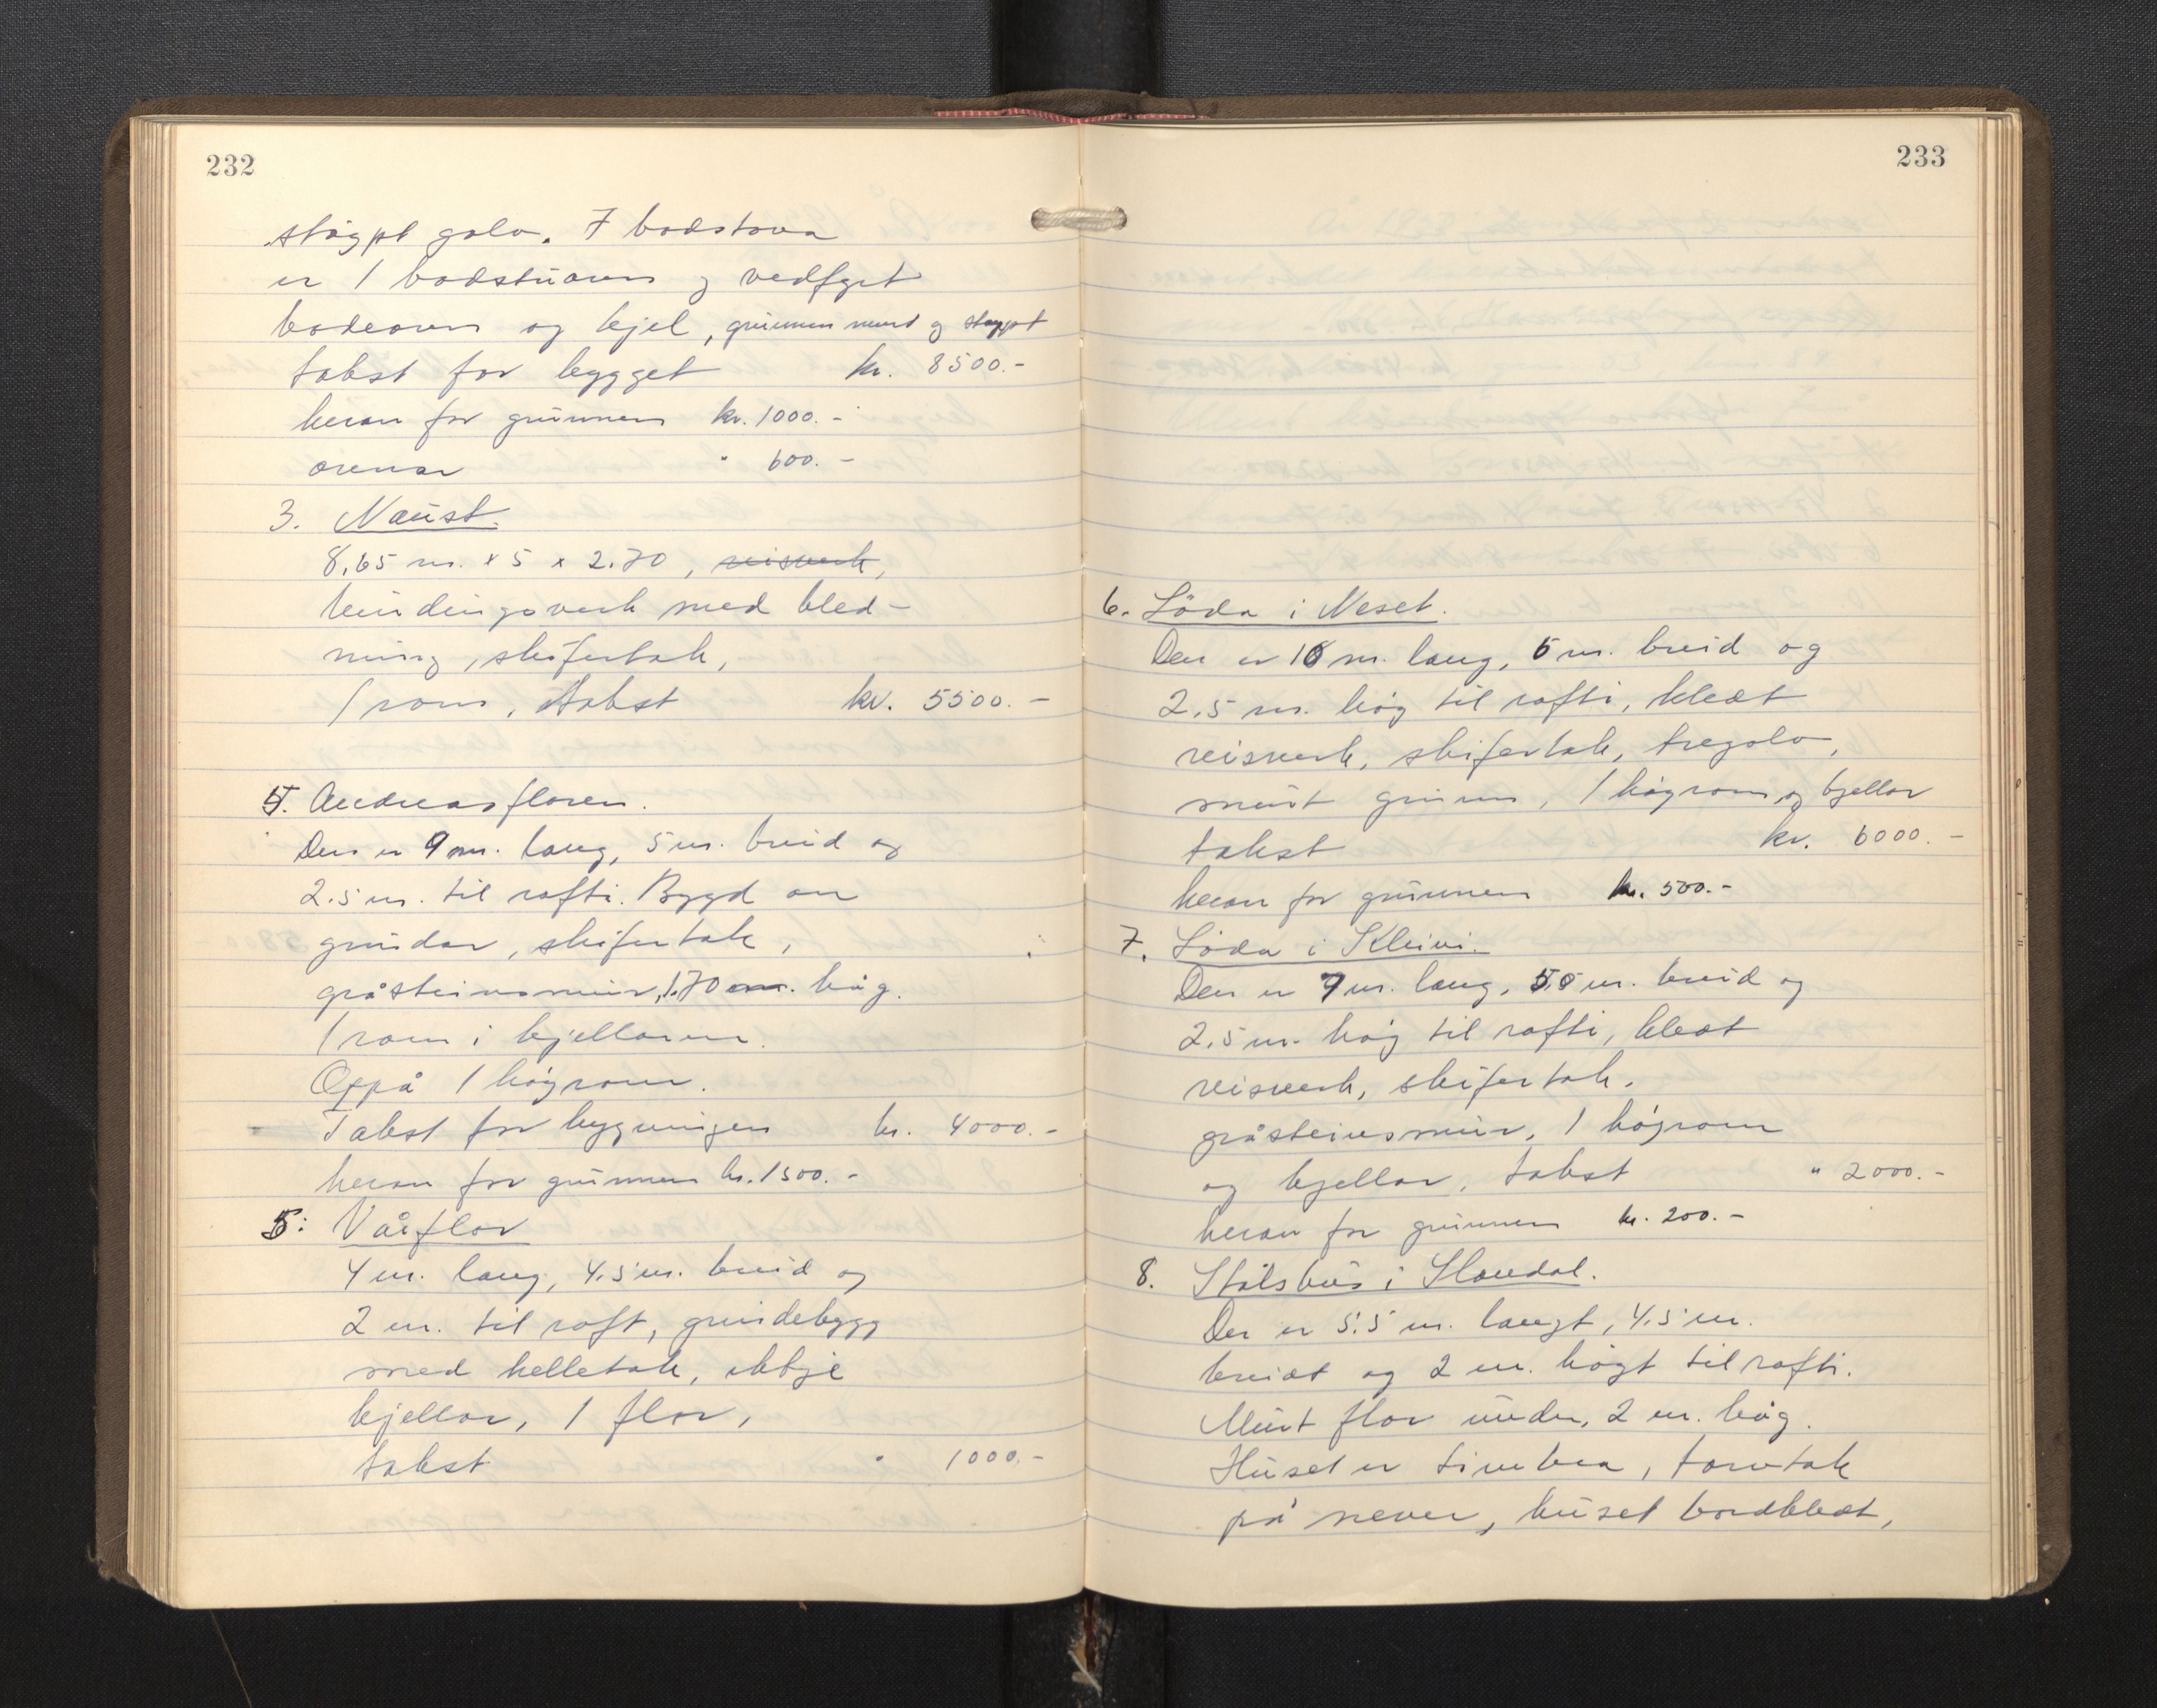 232
støypt golv. I badstova
er 1 badstuomn og vedfyrt
bakeomn og kjel, grunnen murt og støypt
takst for bygget kr. 8500.-
herav for grunnen kr. 1000.-
omnar " 600.-
3. Naust.
8,65 m. x 5 x 2.70, reisverk,
bindingsverk med kled-
ning, skifertak,
1 rom, takst kr. 5500.-
4. Andreasfloren.
Den er 9 m. lang, 5 m. breid og
2.5 m. til rafti. Bygd av
grindar, skifertak,
gråsteinsmur, 1.70 m. høg.
1 rom i kjellaren.
Oppå 1 høyrom.
Takst for bygningen kr. 4000.-
herav for grunnen kr. 1500.-
5. Vårflor
4 m. lang, 4.5 m. breid og
2 m. til raft, grindebygg
med helletak, ikkje
kjellar, 1 flor,
takst " 1000.-
233
6. Löda i Neset.
Den er 10 m. lang, 6 m. breid og
2.5 m. høg til rafti, kledt
reisverk, skifertak, tregolv,
murt grunn, 1 høyrom og kjellar
takst kr. 6000.-
herav for grunnen kr. 500.-
7. Löda i Kleivi.
Den er 9 m. lang, 5.5 m. breid og
2.5 m. høg til rafti, kledt
reisverk, skifertak,
gråsteinsmur, 1 høyrom
og kjellar, takst " 2000.-
herav for grunnen kr. 200.-
8. Stølshus i
Der er 5.5 m. langt, 4.5 m.
breidt og 2 m. høgt til rafti.
Murt flor under, 2 m. høg.
Huset er timbra, torvtak
på never, huset bordkledt,